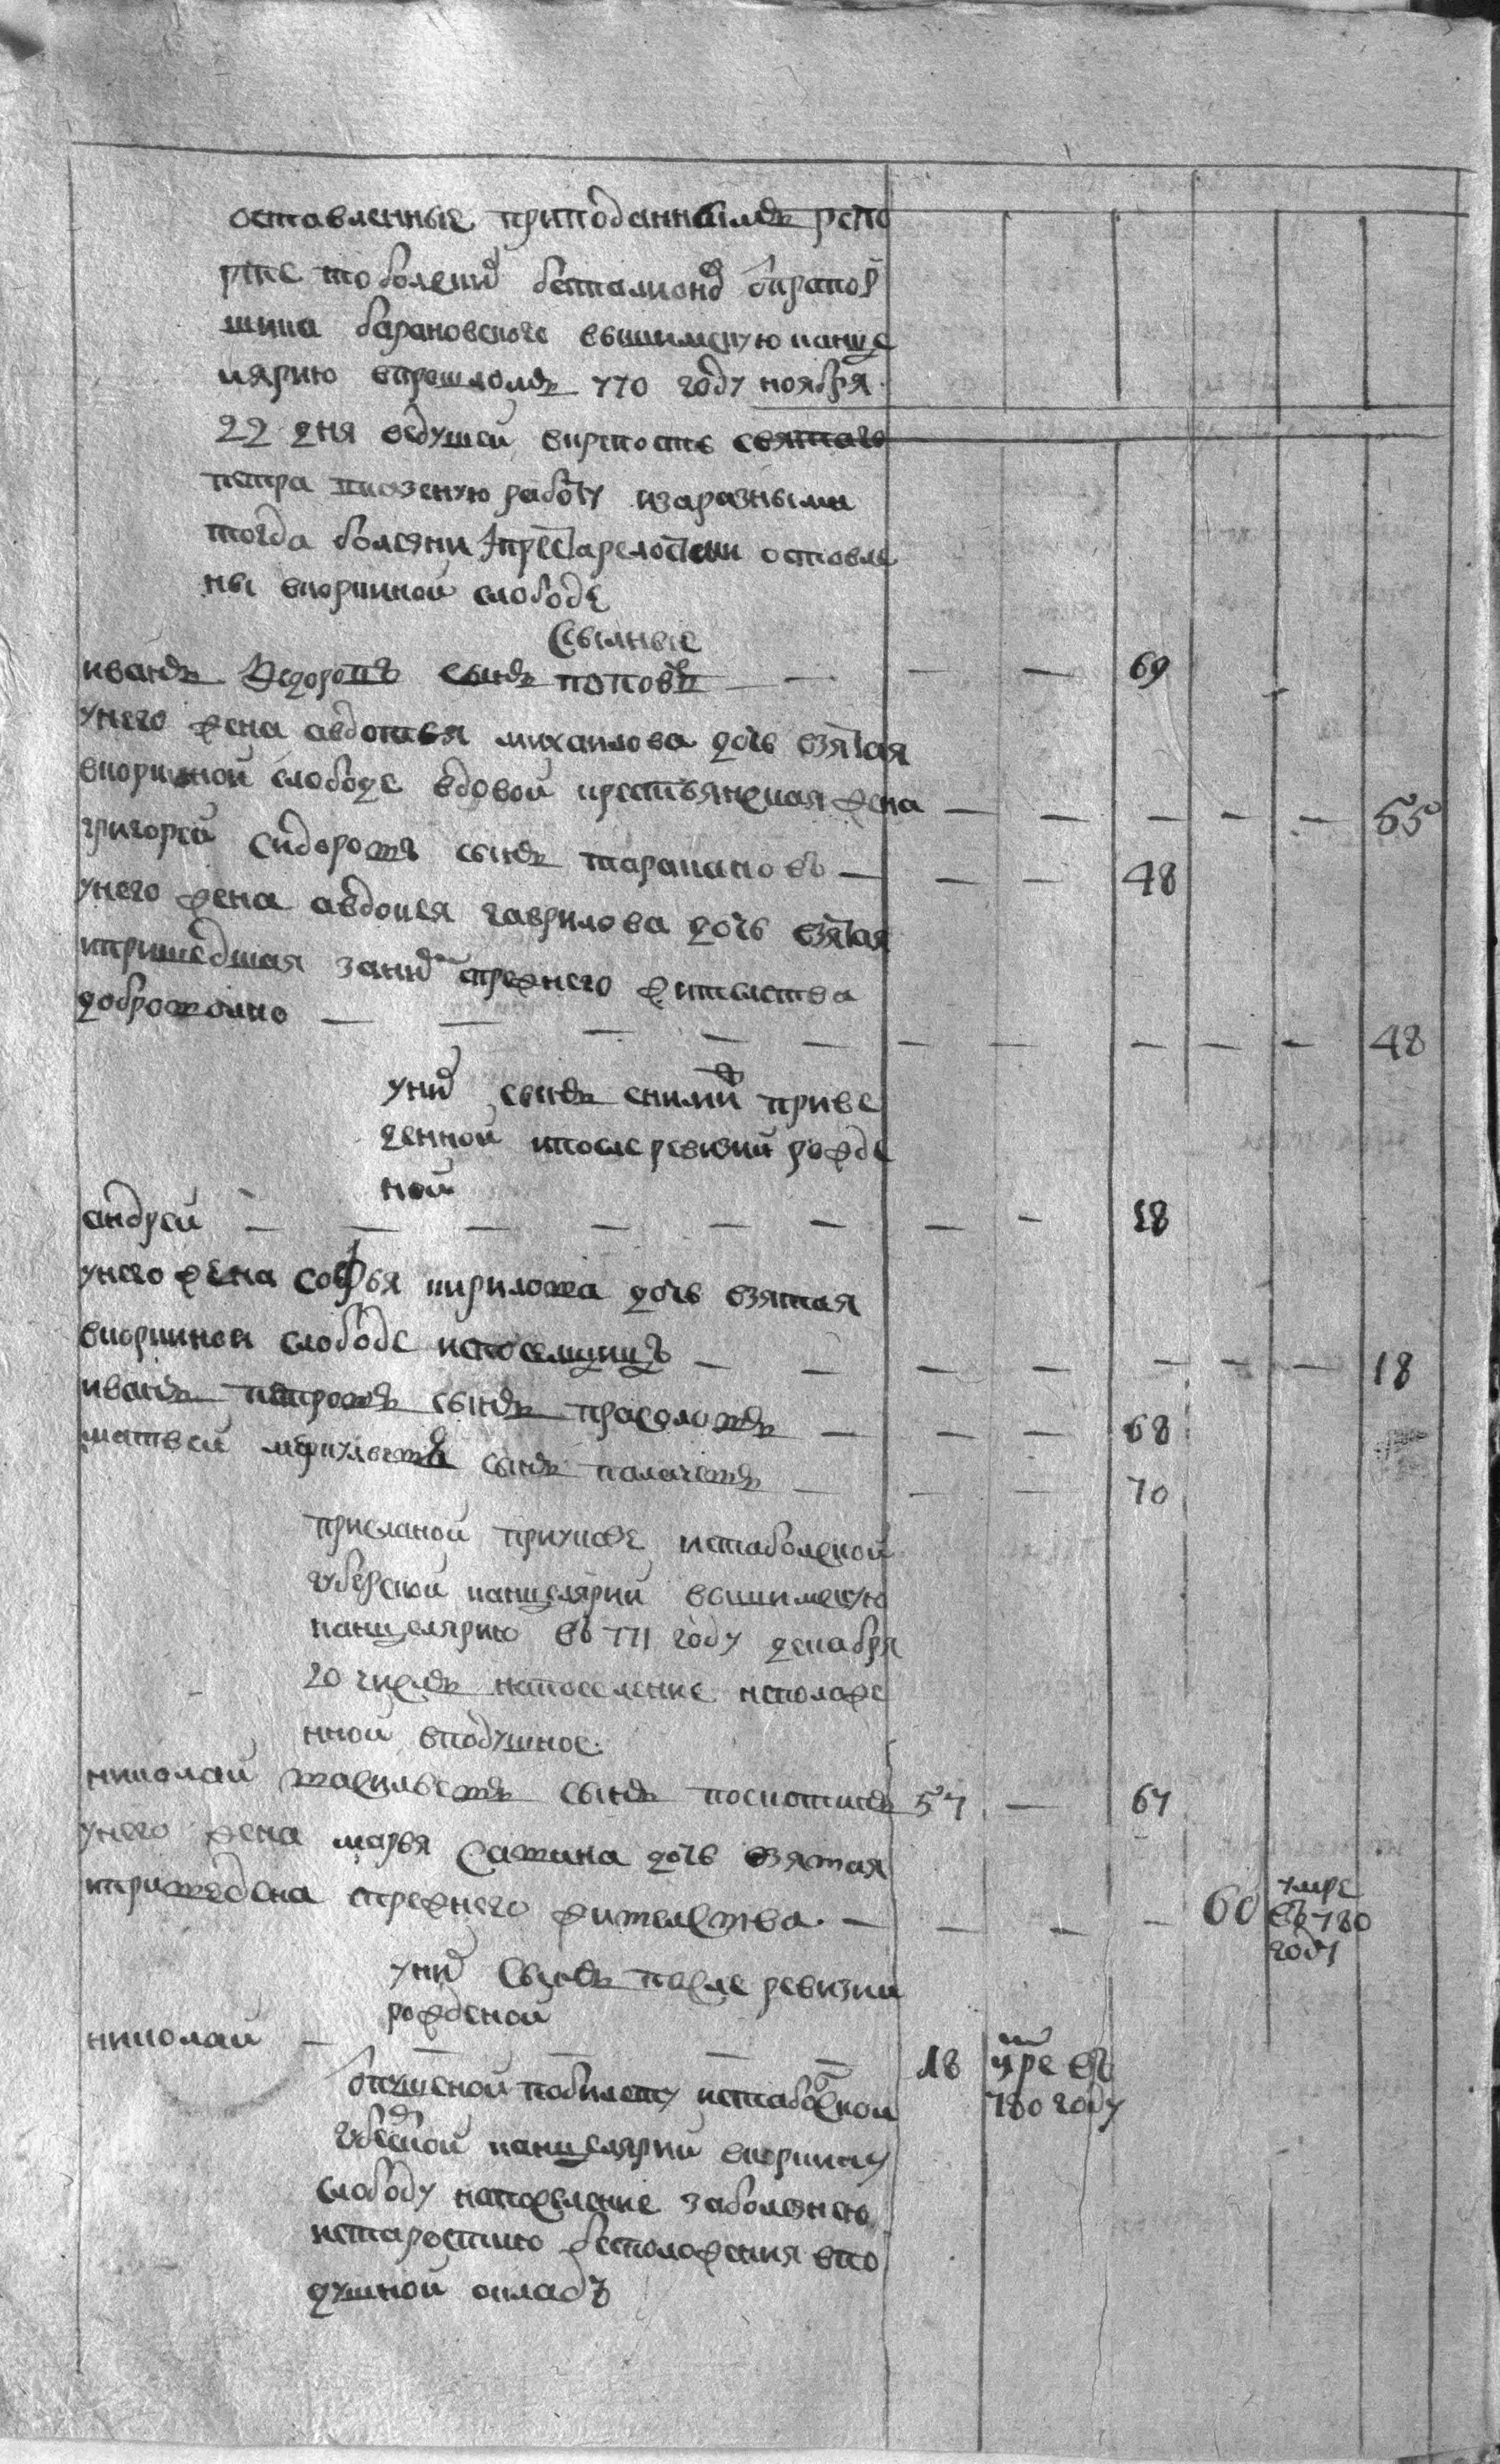 оставленные приподанномъ репо
рте тоболскаго баталиона
шика барановского вышимскую канце
лярию впрошломъ 770 году ноября
22 дня ведушей вкрепость святаго
петра казеную работу заразными
тогда болезни и престарелостии оставле
ны вкоркиной слободе
Ссылные
иванъ Федоровъ сынъ поповъ — — 69
унего жена авдотья михаилова дочь взятая
вкоркиной слободе вдовой крестьянская жена — — — — — 55
григорей сидоровъ сынъ таракановъ — — — 48
унего жена авдотья гаврилова дочь взятая
ипришедшая заним спрежнего жителства
доброволно — — — — — — — — — — 48
уних сынъ сними приве
денной ипосле ревизии рожде
ной
андрей — — — — — — — — 18
унего жена софья кирилова дочь взятая
вкоркиной слободе испоселщицъ — — — — — — — 18
иванъ петровъ сынъ прасоловъ — — — 68
матвей меркульевъ сынъ палачевъ — — — 70
присланой приуказе истоболской
губерской канцелярии вышимскую
канцелярию въ 771 году декабря
20 числъ напоселение неположе
нной вподушное
николай васильевъ сынъ поскотинъ 57 — 67
унего жена марья савина дочь взятая
иприведена спрежнего жителства — — — — 60 умре въ 780 году
уних сынъ после ревизии
рожденой
николай — — — — — 18 умре въ 780 году
отпушеной побилету истоболской
губернской канцелярии вкоркину
слободу напоселение заболезнею
истаростию бесположения впо
душной окладъ